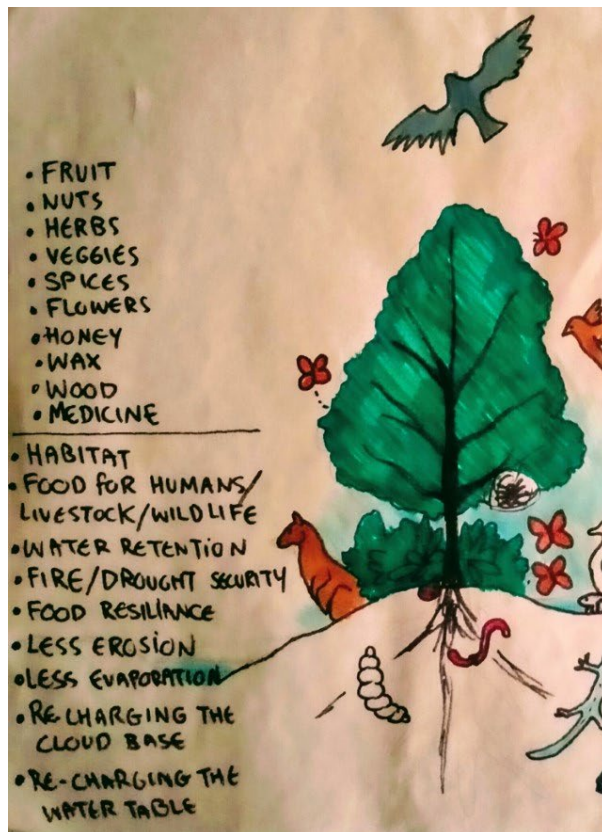 • FRUIT
• NUTS
• HERBS
• VEGGIES
• SPICES
• FLOWERS
• HONEY
• WAX
• WOOD
• MEDICINE
• HABITAT
• FOOD FOR HUMANS/
LIVESTOCK/WILDLIFE
• WATER RETENTION
• FIRE/DROUGHT SECURITY
• FOOD RESILIANCE
• LESS EROSION
• LESS EVAPORATION
• RE-CHARGING THE
CLOUD BASE
• RE-CHARGING THE
WATER TABLE